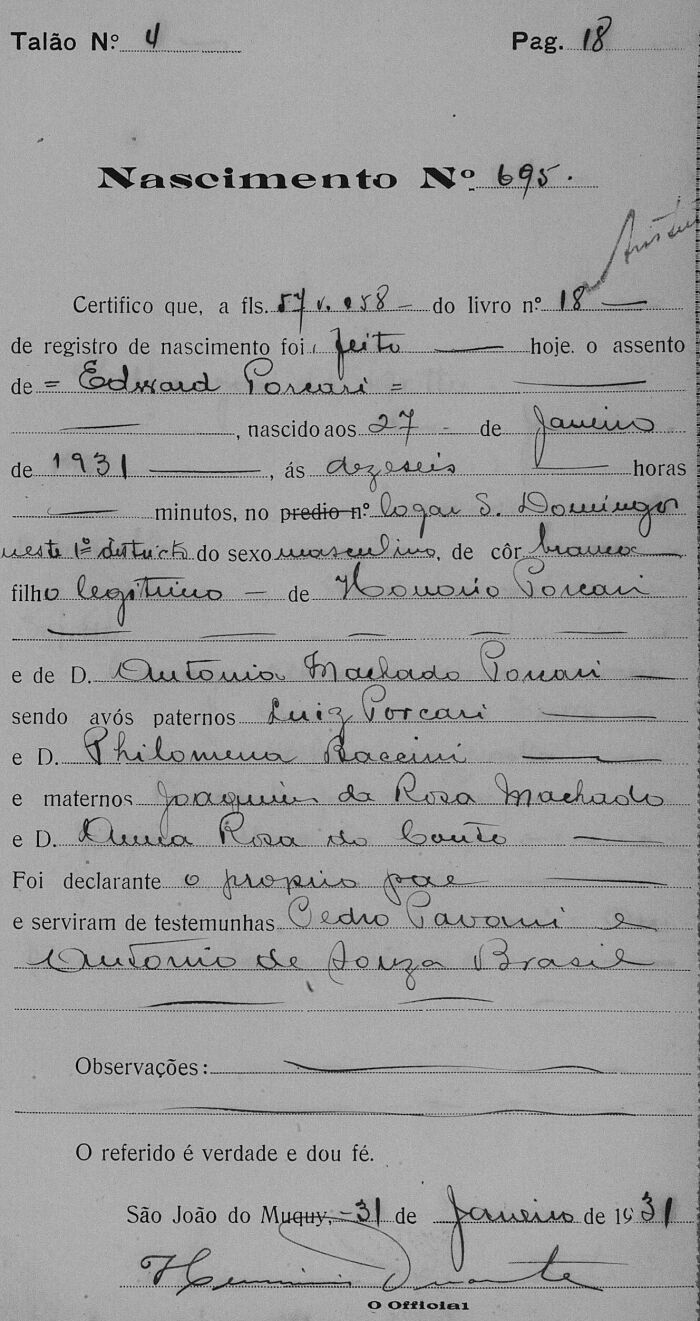 Talão N.º 4 Pag. 18
Nascimento Nº 695.
Certifico que, a fls. 57 v. e 58 — do livro n.º 18 —
de registro de nascimento foi feito — hoje. o assento
de = Edward Porcari = —
—, nascido aos 27 - de Janeiro
de 1931 —, ás dezeseis — horas
— minutos, no predio n.º logar S. Domingos
neste 1º districto do sexo masculino, de côr branca —
filho legitimo — de Honorio Porcari
e de D. Antonia Machado Porcari —
sendo avós paternos Luiz Porcari —
e D. Philomena Baccini —
e maternos Joaquim da Rosa Machado
e D. Anna Rosa do Couto —
Foi declarante o proprio pae —
e serviram de testemunhas Pedro Pavani e
Antonio de Souza Brasil
Observações: —
O referido é verdade e dou fé.
São João do Muquy, -31 de Janeiro de 1931
Duarte
O Official